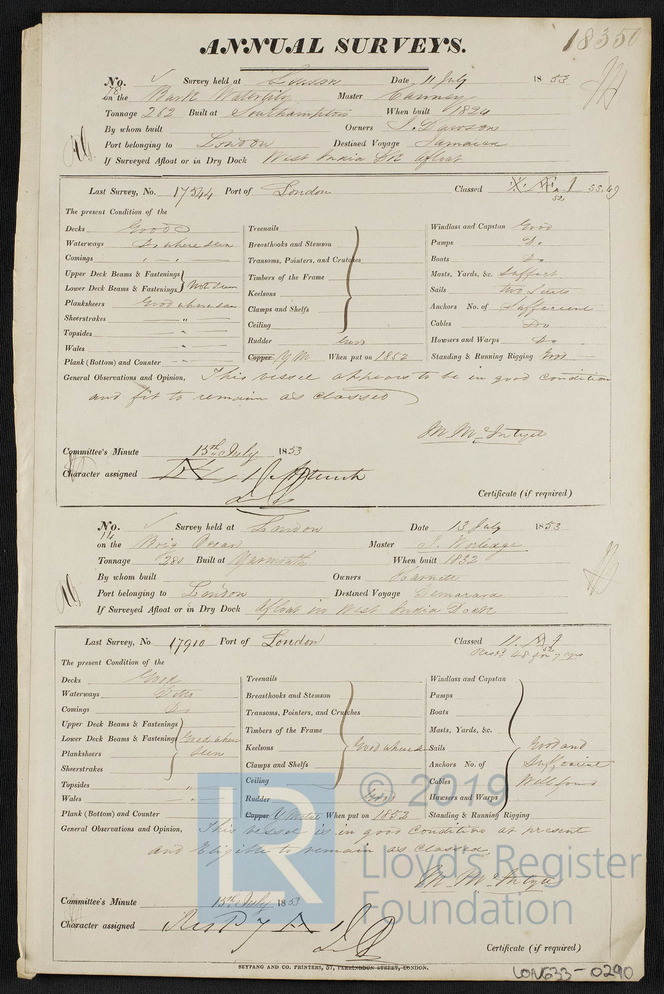 ANNUAL SURVEYS.
18350
No. Survey held at London Date 11 July 1853
on the Bark Waterlily Master
Tonnage 262 Built at Southampton When built 1824
By whom built Owners Dawson
Port belonging to London Destined Voyage Jamaica
If Surveyed Afloat or in Dry Dock West India Dk Afloat
Last Survey, No. 17544 Port of London Classed
The present Condition of the
Decks Good Treenails Windlass and Capstan Good
Waterways Do where seen Breasthooks and Stemson Pumps Do
Comings Transoms, Pointers, and Crutches Boats Do
Upper Deck Beams & Fastenings Timbers of the Frame Masts, Yards, &c.
Lower Deck Beams & Fastenings Not seen Keelsons Sails
Planksheers Good where seen Clamps and Shelfs Anchors No. of Sufficient
Sheerstrakes " Ceiling Cables Do
Topsides Rudder Good Hawsers and Warps Do
Wales Copper Y M When put on 1852 Standing & Running Rigging Good
Plank (Bottom) and Counter
General Observations and Opinion, This vessel appears to be in good condition
and fit to remain as classed
M McIntyre
Committee's Minute 15th July 1853
Character assigned
Certificate (if required)
No. Survey held at London Date 13 July 1853
on the Brig Ocean Master
Tonnage Built at Yarmouth When built 1832
By whom built Owners
Port belonging to London Destined Voyage Demarara
If Surveyed Afloat or in Dry Dock Afloat in West India Dock
Last Survey, No 17910 Port of London Classed
The present Condition of the
Decks Good Treenails Windlass and Capstan
Waterways Ditto Breasthooks and Stemson Pumps
Comings Do Transoms, Pointers, and Crutches Boats
Upper Deck Beams & Fastenings Timbers of the Frame Masts, Yards, &c.
Lower Deck Beams & Fastenings Good where Keelsons Good where Sails Good and
Planksheers seen Clamps and Shelfs Anchors No. of Sufficient
Sheerstrakes Ceiling Cables Well found
Topsides " Rudder Good Hawsers and Warps
Wales Copper When put on 1852 Standing & Running Rigging
Plank (Bottom) and Counter
General Observations and Opinion, This vessel is in good Condition at present
and Eligible to remain as Classed
M McIntyre
Committee's Minute 15th July 1853
Character assigned
Certificate (if required)
SEYFANG AND CO. PRINTERS, 57, FARRINGDON STREET, LONDON.
LON633-0290
© 2019
LR
Lloyd's Register
Foundation